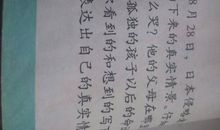 8月28日，日本侵
下来的真实情景。仔
么哭？他的父母哪
孤独的孩子以后的命
看到的和想到的写
达出自己的真实情